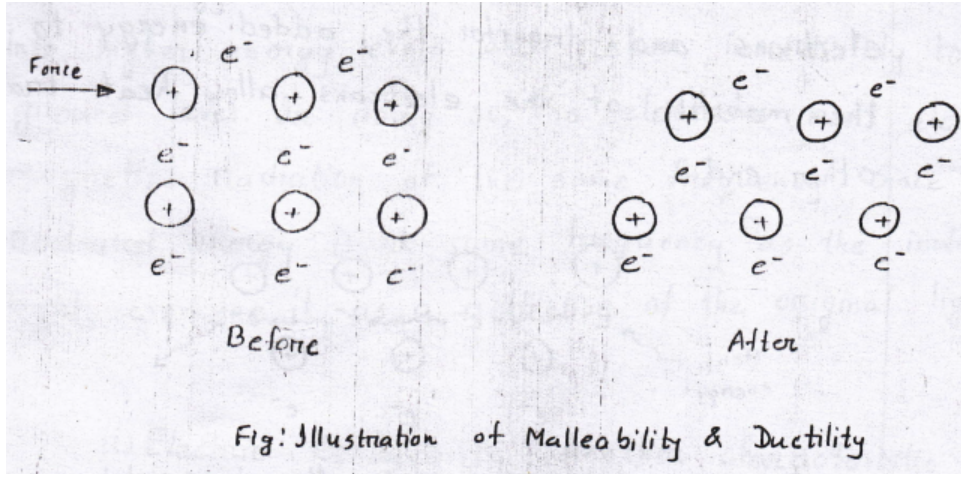 e⁻ e⁻
Force
+ + +
e⁻ e⁻ e⁻
+ + +
e⁻ e⁻ e⁻
Before
e⁻ e⁻
+ + +
e⁻ e⁻ e⁻
+ + +
e⁻ e⁻ e⁻
After
Fig: Illustration of Malleability & Ductility